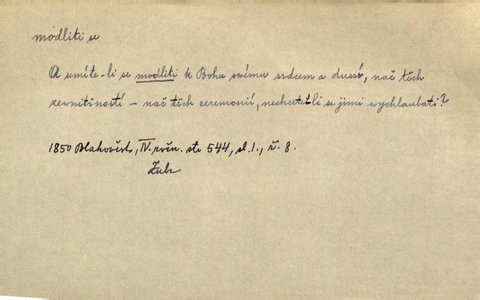 modliti se
A umíte-li se modliti k Bohu svému srdcem a duší, nač těch
zevnitřností – nač těch ceremonií, nechcete-li se jimi vychloubati?
1850 Blahověst, IV. rčn. str 544, sl. 1., ř. 8.